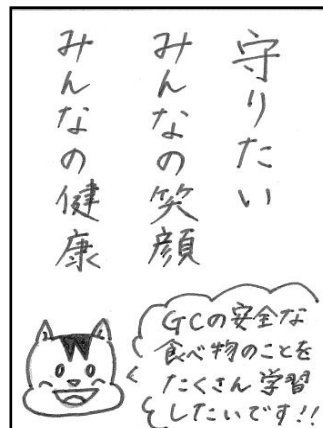 守りたい
みんなの笑顔
みんなの健康
GCの安全な
食べ物のことを
たくさん学習
したいです!!